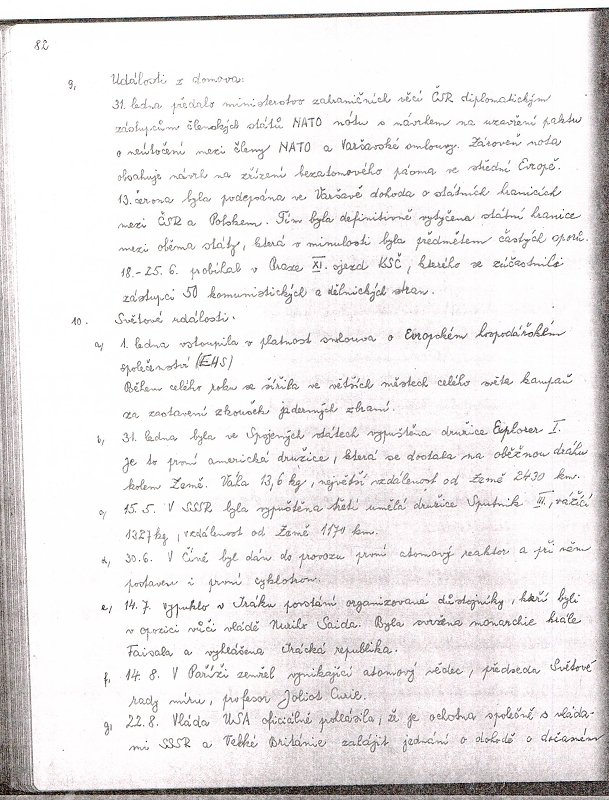 82
9, Události z domova:
31. ledna předalo ministerstvo zahraničních věcí ČSR diplomatickým
zástupcům členských států NATO nótu s návrhem na uzavření paktu
o neútočení mezi členy NATO a Varšavské smlouvy. Zároveň nota
obsahuje návrh na zřízení bezatomového pásma ve střední Evropě.
13. června byla podepsána ve Varšavě dohoda o státních hranicích
mezi ČSR a Polskem. Tím byla definitivně vytyčena státní hranice
mezi oběma státy, která v minulosti byla předmětem častých sporů.
18.-25.6. probíhal v Praze XI. sjezd KSČ, kterého se zúčastnili
zástupci 50 komunistických a dělnických stran.
10. Světové události.
a, 1. ledna vstoupila v platnost smlouva o Evropském hospodářském
společenství (EHS)
Během celého roku se šířila ve větších městech celého světa kampaň
za zastavení zkoušek jaderných zbraní.
b, 31. ledna byla ve Spojených státech vypuštěna družice Explorer I.
Je to první americká družice, která se dostala na oběžnou dráhu
kolem Země. Váha 13,6 kg, největší vzdálenost od Země 2430 km.
c, 15.5. V SSSR byla vypuštěna třetí umělá družice Sputnik III, vážící
1327 kg, vzdálenost od Země 1170 km.
d, 30.6. V Číně byl dán do provozu první atomový reaktor a při něm
postaven i první cyklotron.
e, 14.7. vypuklo v Iráku povstání organizované důstojníky, kteří byli
v opozici vůči vládě Nuriho Saida. Byla svržena monarchie krále
Faisala a vyhlášena Irácká republika.
f, 14.8. V Paříži zemřel vynikající atomový vědec, předseda Světové
rady míru, profesor Joliot Curie.
g, 22.8. Vláda USA oficiálně prohlásila, že je ochotna společně s vláda-
mi SSSR a Velké Británie zahájit jednání o dohodě o dočasném